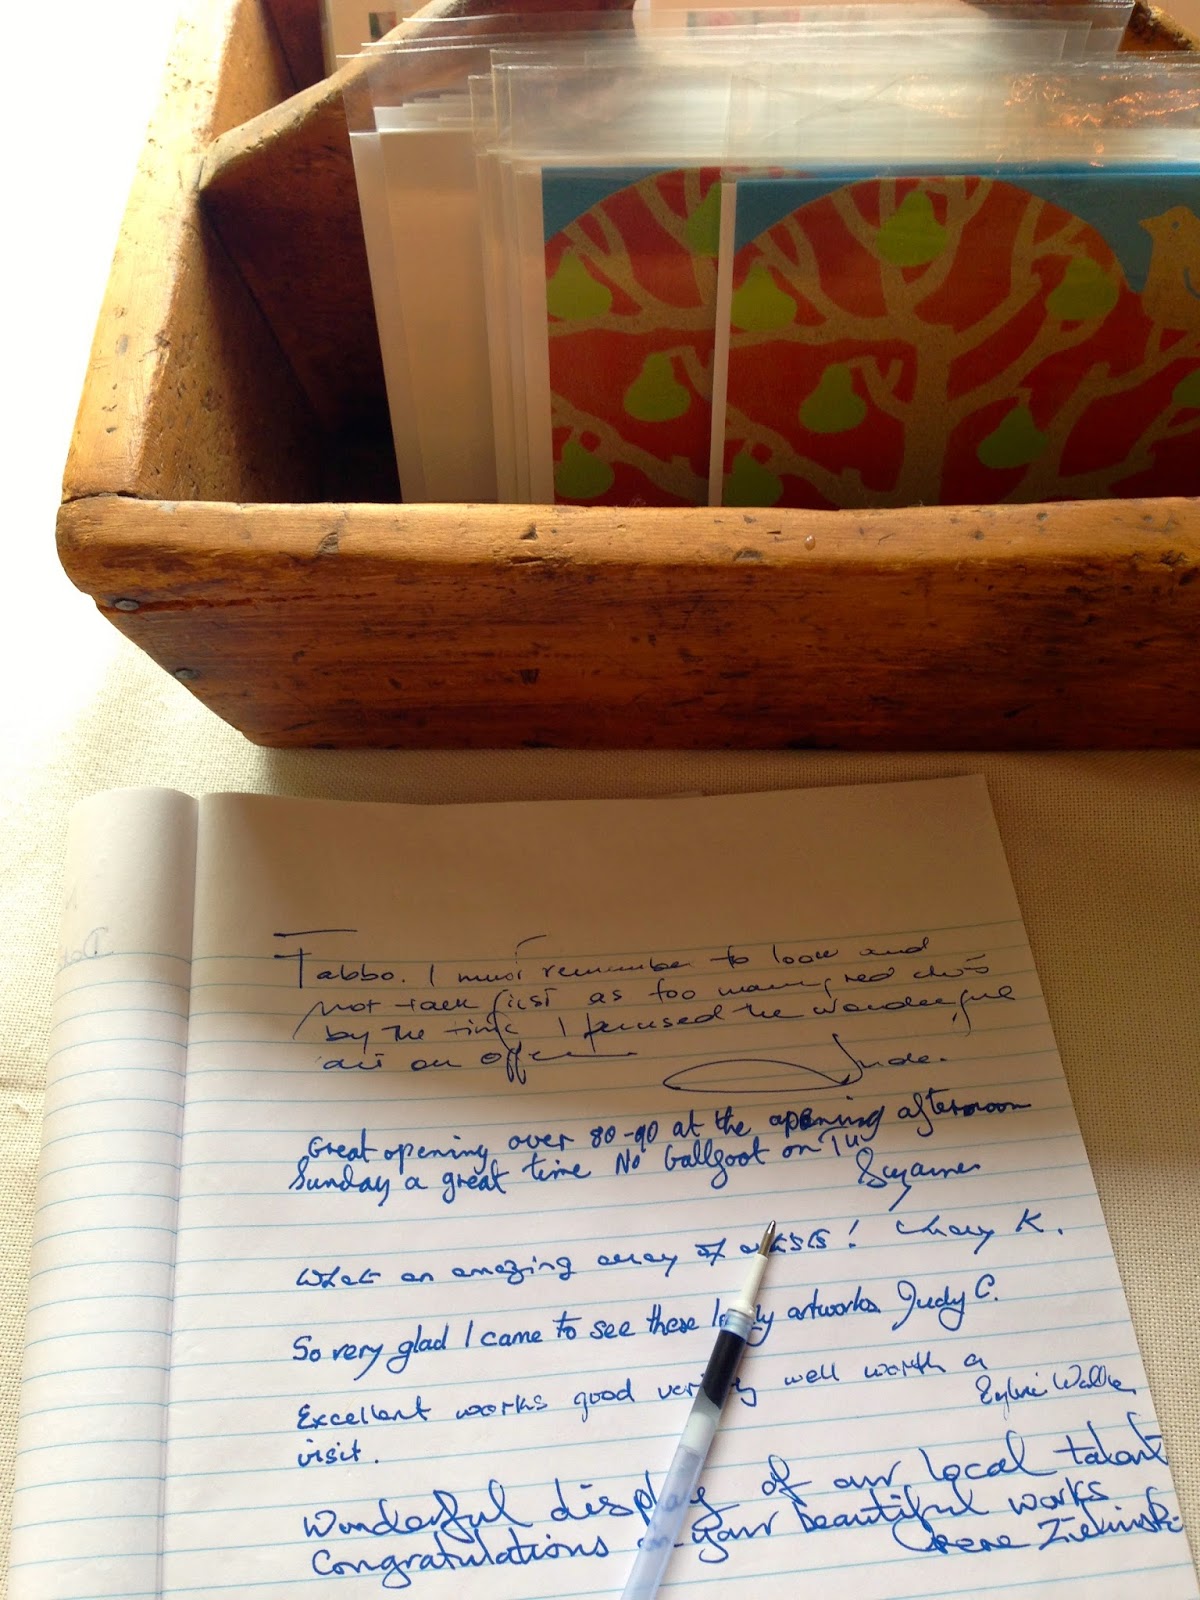 Fabbo. I must remember to look and
not talk first as too many red dots
by the time I perused the wonderful
art on offer
Jude.
Great opening over 80-90 at the opening afternoon
Sunday a great time No Gallfoot on
Suzanne
What an amazing array of artists! K.
So very glad I came to see these lovely artworks Judy C.
Excellent works good variety well worth a
visit.
Wonderful display of our local talent
Congratulations on your beautiful works